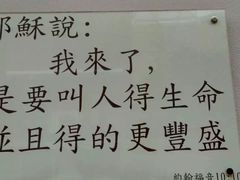 耶穌說：
我來了，
是要叫人得生命
並且得的更豐盛
約翰福音10:10